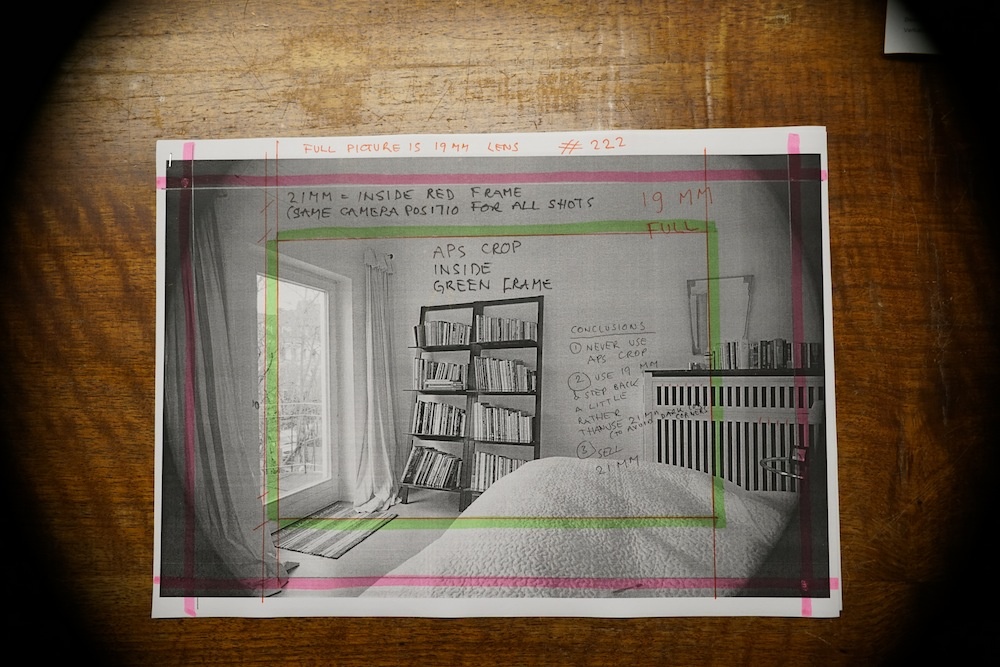 FULL PICTURE IS 19 MM LENS # 222
21MM = INSIDE RED FRAME
(SAME CAMERA POSITIO FOR ALL SHOTS
19 MM
FULL
APS CROP
INSIDE
GREEN FRAME
CONCLUSIONS
① NEVER USE
APS CROP
② USE 19 MM
& STEP BACK
A LITTLE
RATHER
THAN USE 21 MM
(TO AVOID DARK
CORNERS
③ SELL
21 MM